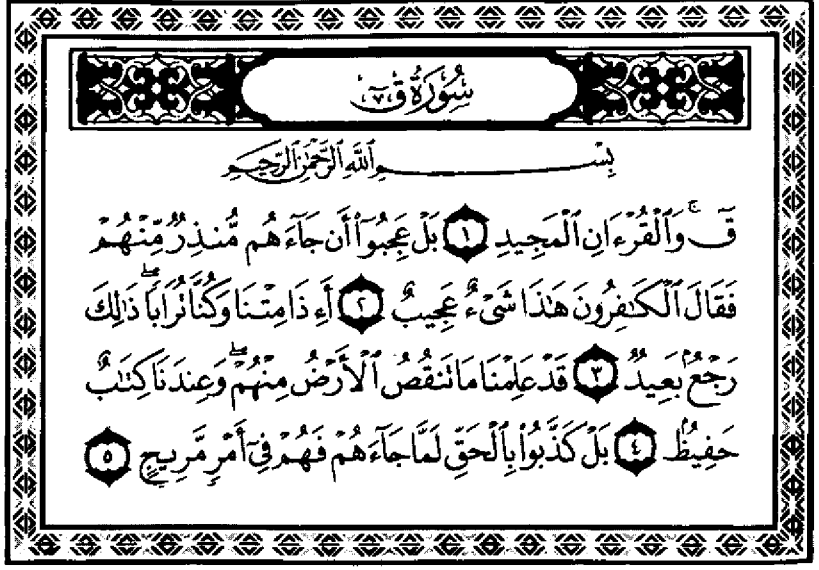 سُورَةُ ق
بِسْمِ ٱللَّهِ ٱلرَّحْمَٰنِ ٱلرَّحِيمِ
قٓ ۚ وَٱلْقُرْءَانِ ٱلْمَجِيدِ ١ بَلْ عَجِبُوٓا۟ أَن جَآءَهُم مُّنذِرٌ مِّنْهُمْ
فَقَالَ ٱلْكَٰفِرُونَ هَٰذَا شَىْءٌ عَجِيبٌ ٢ أَءِذَا مِتْنَا وَكُنَّا تُرَابًا ۖ ذَٰلِكَ
رَجْعٌۢ بَعِيدٌ ٣ قَدْ عَلِمْنَا مَا تَنقُصُ ٱلْأَرْضُ مِنْهُمْ ۖ وَعِندَنَا كِتَٰبٌ
حَفِيظٌۢ ٤ بَلْ كَذَّبُوا۟ بِٱلْحَقِّ لَمَّا جَآءَهُمْ فَهُمْ فِىٓ أَمْرٍ مَّرِيجٍ ٥